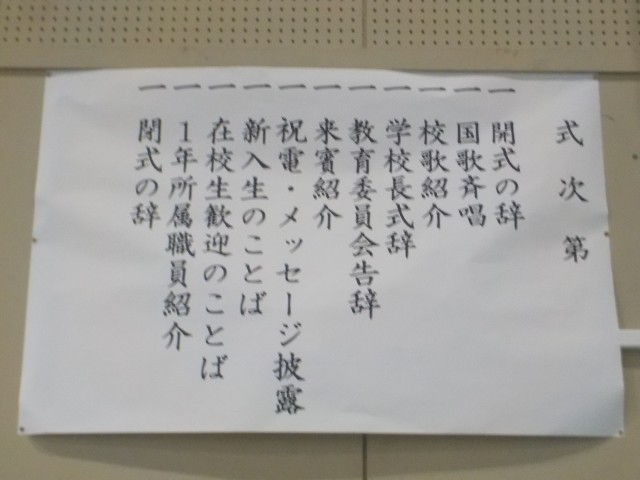 式次第
一 開式の辞
一 国歌斉唱
一 校歌紹介
一 学校長式辞
一 教育委員会告辞
一 来賓紹介
一 祝電・メッセージ披露
一 新入生のことば
一 在校生歓迎のことば
一 1年所属職員紹介
一 閉式の辞